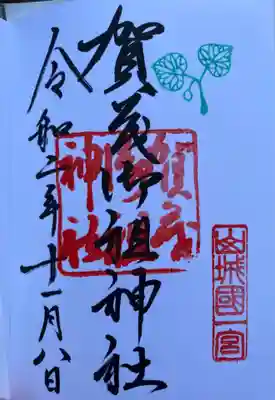 山城國一宮
賀茂御祖神社
賀茂御祖神社
令和二年十一月八日